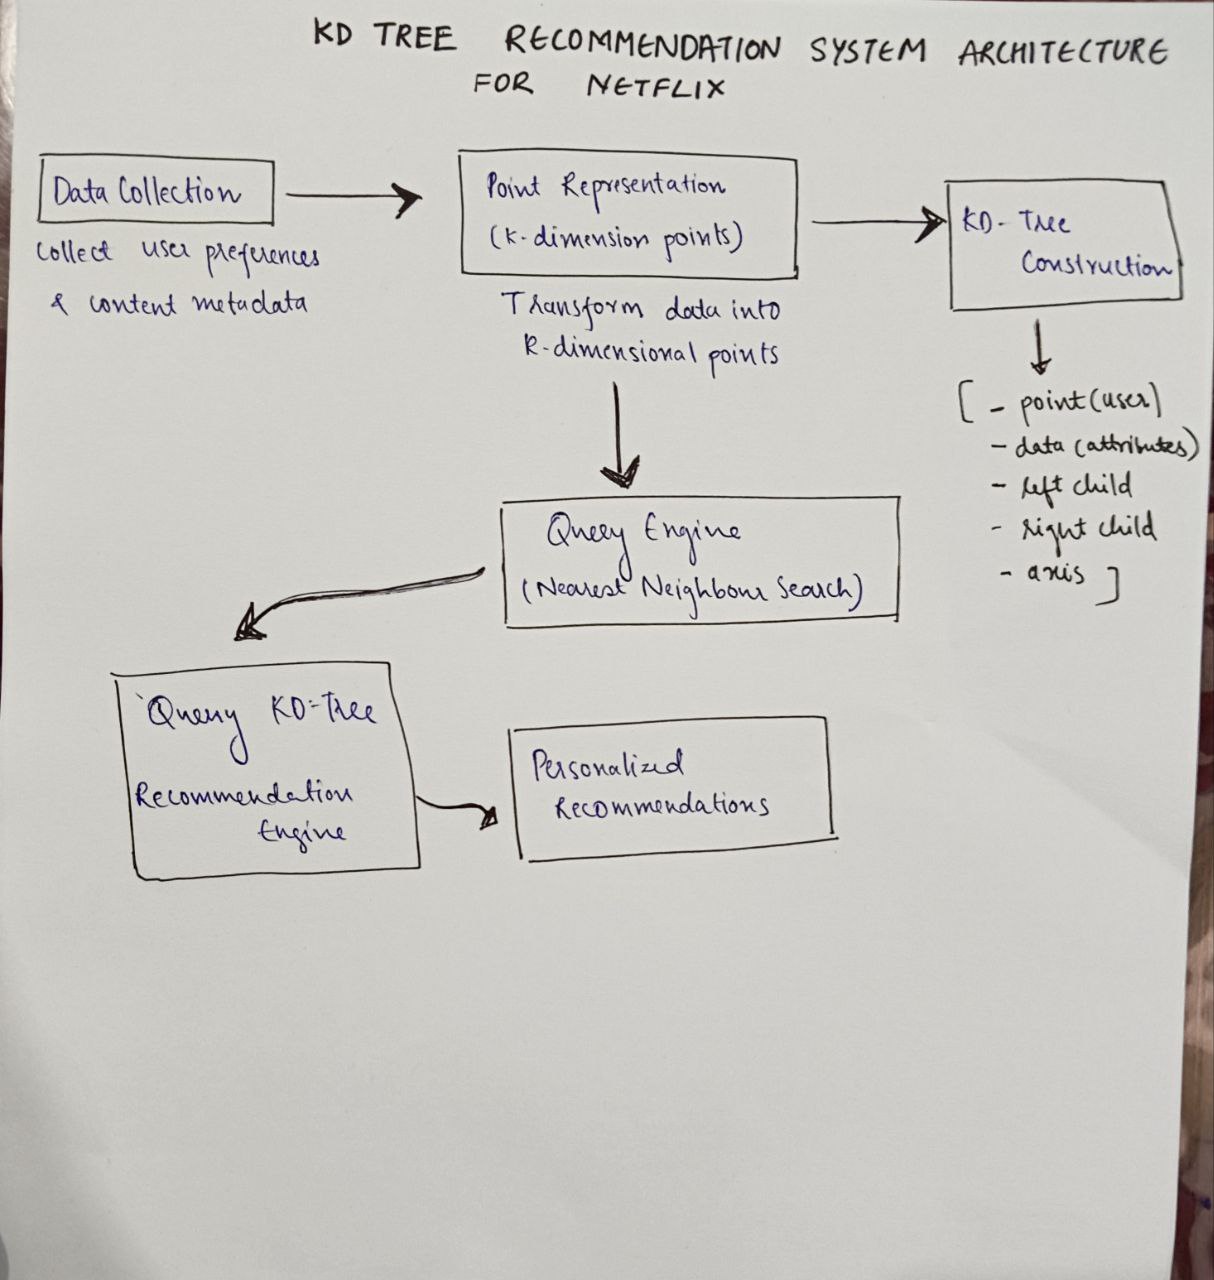 KD TREE RECOMMENDATION SYSTEM ARCHITECTURE
FOR NETFLIX
Data Collection
Collect user preferences
& content metadata
Point Representation
(K-dimension points)
Transform data into
K-dimensional points
KD-Tree
Construction
[ - point (user)
- data (attributes)
- left child
- right child
- axis ]
Query Engine
(Nearest Neighbour Search)
Query KD-Tree
Recommendation
Engine
Personalized
Recommendations